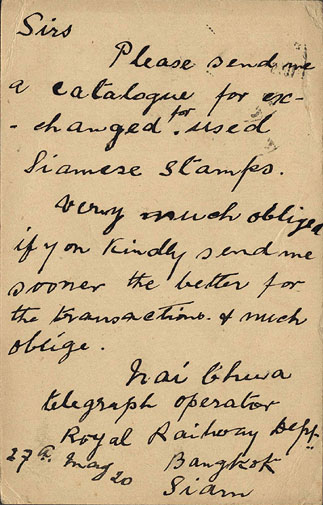 Sirs
Please send me
a catalogue for ex-
-changed for used
Siamese stamps.
Very much obliged
if you kindly send me
sooner the better for
the transactions & much
oblige.
Nai Chua
telegraph operator
Royal Railway Dept.
27th May 20 Bangkok
Siam